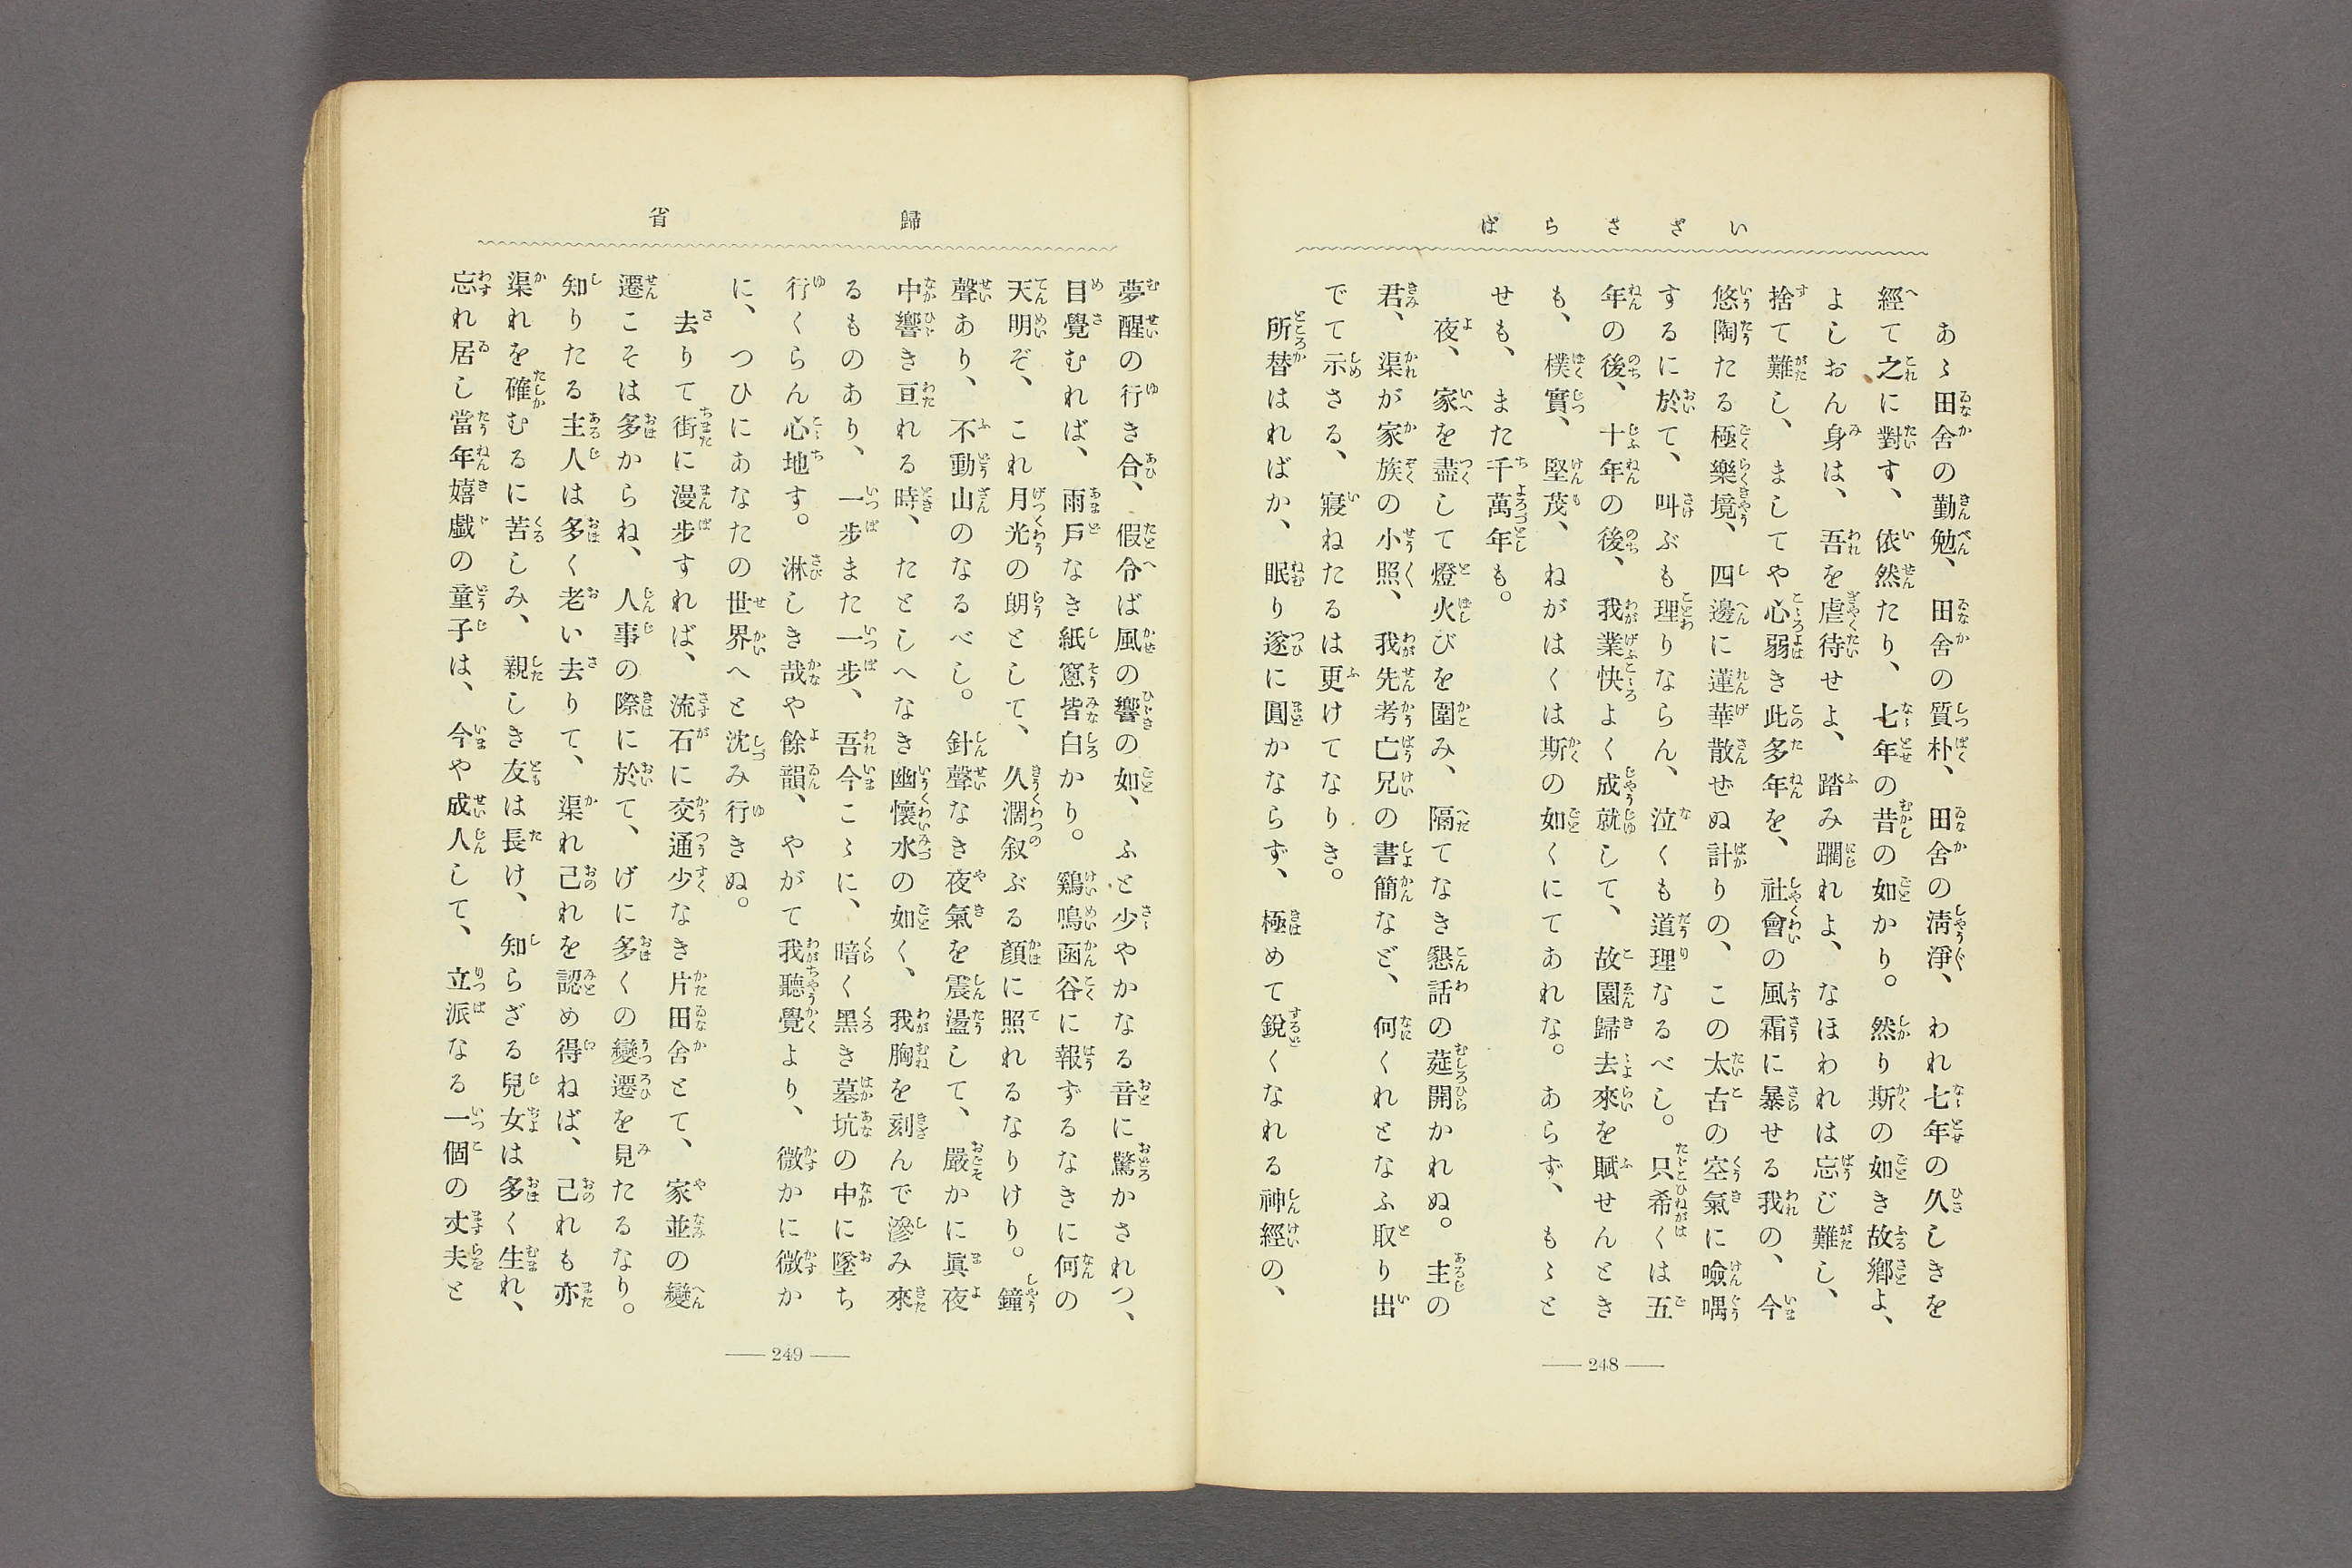 いざさらば
あゝ田舍の勤勉、田舍の質朴、田舍の淸淨、われ七年の久しきを
經て之に對す、依然たり、七年の昔の如かり。然り斯の如き故鄕よ、
よしおん身は、吾を虐待せよ、踏み躙れよ、なほわれは忘じ難し、
捨て難し、ましてや心弱き此多年を、社會の風霜に暴せる我の、今
悠陶たる極樂境、四邊に蓮華散ぜぬ計りの、この太古の空氣に噞喁
するに於て、叫ぶも理りならん、泣くも道理なるべし。只希くは五
年の後、十年の後、我業快よく成就して、故園歸去來を賦せんとき
も、樸實、堅茂、ねがはくは斯の如くにてあれな。あらず、もゝと
せも、また千萬年も。
夜、家を盡して燈火びを圍み、隔てなき懇話の莚開かれぬ。主の
君、渠が家族の小照、我先考亡兄の書簡など、何くれとなふ取り出
でて示さる、寢ねたるは更けてなりき。
所替はればか、眠り遂に圓かならず、極めて銳くなれる神經の、
248
歸省
夢醒の行き合、假令ば風の響の如、ふと少やかなる音に驚かされつ、
目覺むれば、雨戶なき紙窻皆白かり。鷄鳴函谷に報ずるなきに何の
天明ぞ、これ月光の朗として、久濶叙ぶる顏に照れるなりけり。鐘
聲あり、不動山のなるべし。針聲なき夜氣を震盪して、嚴かに眞夜
中響き亘れる時、たとしへなき幽懷水の如く、我胸を刻んで滲み來
るものあり、一步また一步、吾今こゝに、暗く黑き墓坑の中に墜ち
行くらん心地す。淋しき哉や餘韻、やがて我聽覺より、微かに微か
に、つひにあなたの世界へと沈み行きぬ。
去りて街に漫步すれば、流石に交通少なき片田舍とて、家並の變
遷こそは多からね、人事の際に於て、げに多くの變遷を見たるなり。
知りたる主人は多く老い去りて、渠れ己れを認め得ねば、己れも亦
渠れを確むるに苦しみ、親しき友は長け、知らざる兒女は多く生れ、
忘れ居し當年嬉戲の童子は、今や成人して、立派なる一個の丈夫と
249